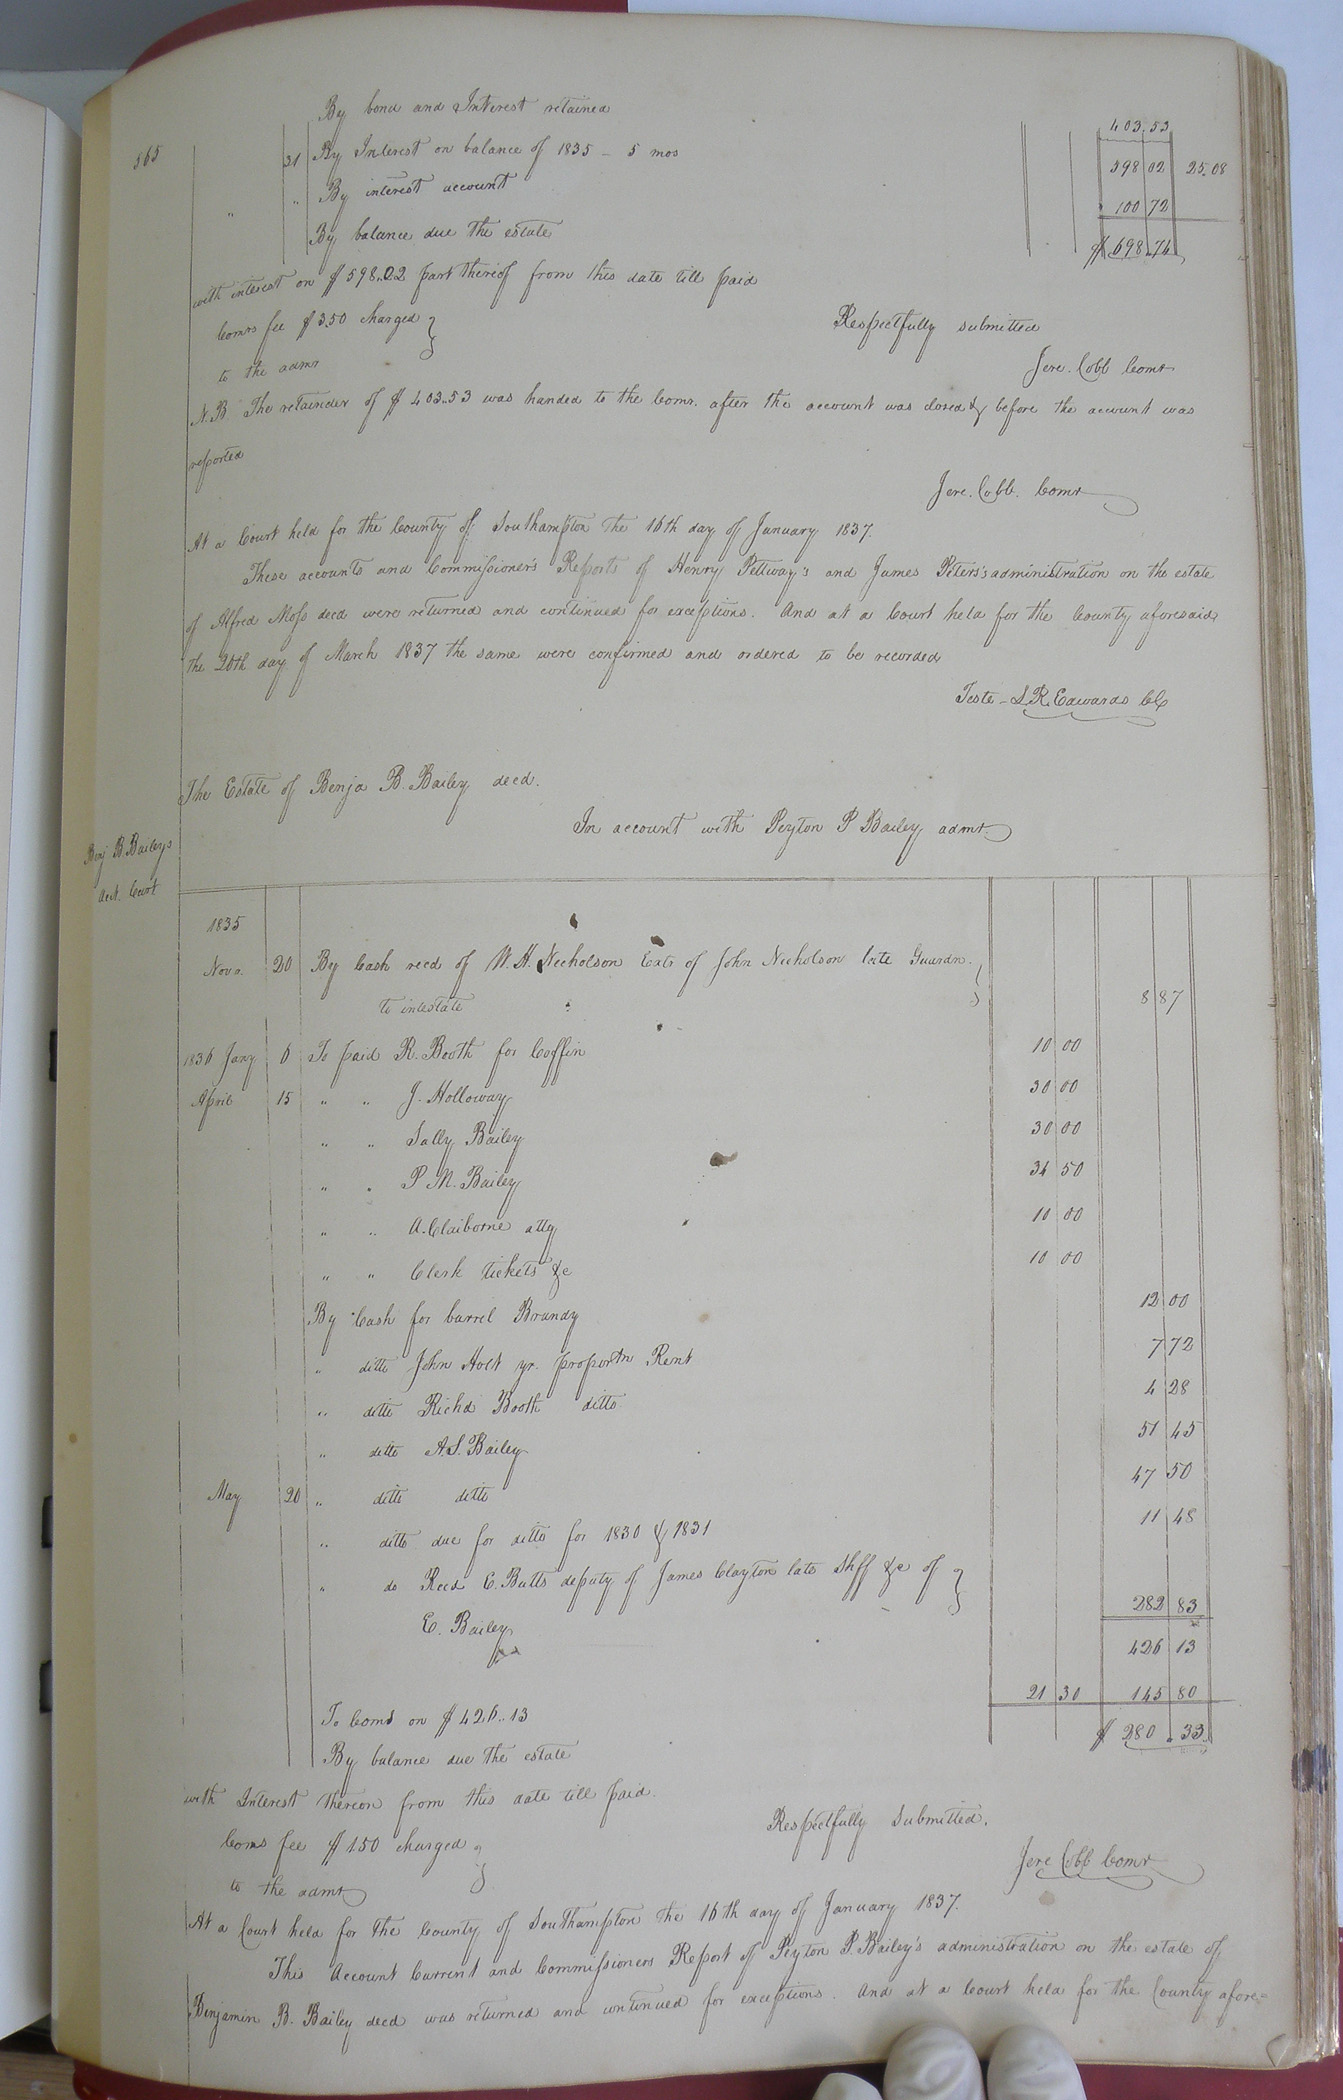 By bond and Interest retained 403.53
565
31 By Interest on balance of 1835 - 5 mos 598 02 25.08
" " By interest account 100 72
By balance due the estate $698.74
with interest on $598..02 part thereof from this date till paid
Comrs fee $3.50 charged }
to the admr
Respectfully submitted
Jere. Cobb Comr
N.B The retainder of $403..53 was handed to the Comr. after the account was closed & before the account was
reported
Jere. Cobb. Comr
At a Court held for the County of Southampton the 16th day of January 1837.
These accounts and Commissioner's Reports of Henry Pettway's and James Peters's administration on the estate
of Alfred Moss decd were returned and continued for exceptions. And at a Court held for the County aforesaid
the 20th day of March 1837 the same were confirmed and ordered to be recorded
Teste - L.R. Edwards CC
The Estate of Benja B. Bailey decd.
In account with Peyton P Bailey admr.
Benj B. Baileys
Acct. Curt
1835
Novr. 20 By Cash recd of W. H. Nicholson Exts of John Nicholson late Guardn. }
to intestate 8 87
1836 Jany 6 To paid R. Booth for Coffin 10 00
April 15 " " J. Holloway 30 00
" " Sally Bailey 30 00
" " P. M. Bailey 34 50
" " A. Claiborne atty 10 00
" " Clerk tickets &c 10 00
By Cash for barrel Brandy 12 00
" ditto John Holt yr. proportn Rent 7 72
" ditto Richd Booth ditto 4 28
" ditto A.S. Bailey 51 45
May 20 " ditto ditto 47 50
" ditto due for ditto for 1830 & 1831 11 48
" do Recd E. Butts deputy of James Clayton late Shff &c of }
E. Bailey 282 83
426 13
To Coms on $426..13 21 30 145 80
By balance due the estate $280.33
with Interest thereon from this date till paid.
Coms fee $1.50 charged }
to the admr
Respectfully Submitted.
Jere Cobb Comr
At a Court held for the County of Southampton the 16th day of January 1837.
This Account Current and Commissioners Report of Peyton P. Bailey's administration on the estate of
Benjamin B. Bailey decd was returned and continued for exceptions. And at a Court held for the County afore=